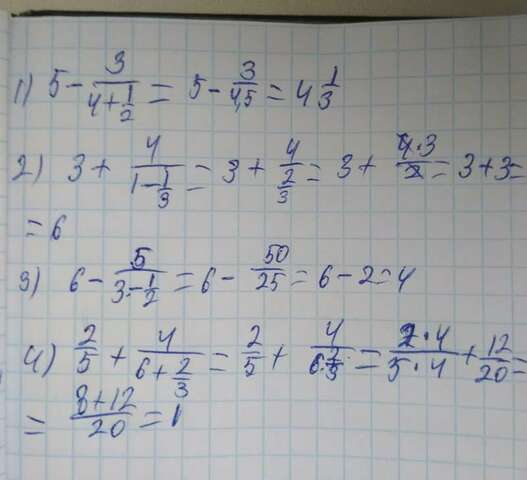 1) 5 - 3/(4 + 1/2) = 5 - 3/4,5 = 4 1/3
2) 3 + 4/(1 - 1/3) = 3 + 4/(2/3) = 3 + 4·3/2 = 3 + 3 =
= 6
3) 6 - 5/(3 - 1/2) = 6 - 50/25 = 6 - 2 = 4
4) 2/5 + 4/(6 + 2/3) = 2/5 + 4/(6 2/3) = 2·4/5·4 + 12/20 =
= (8 + 12)/20 = 1